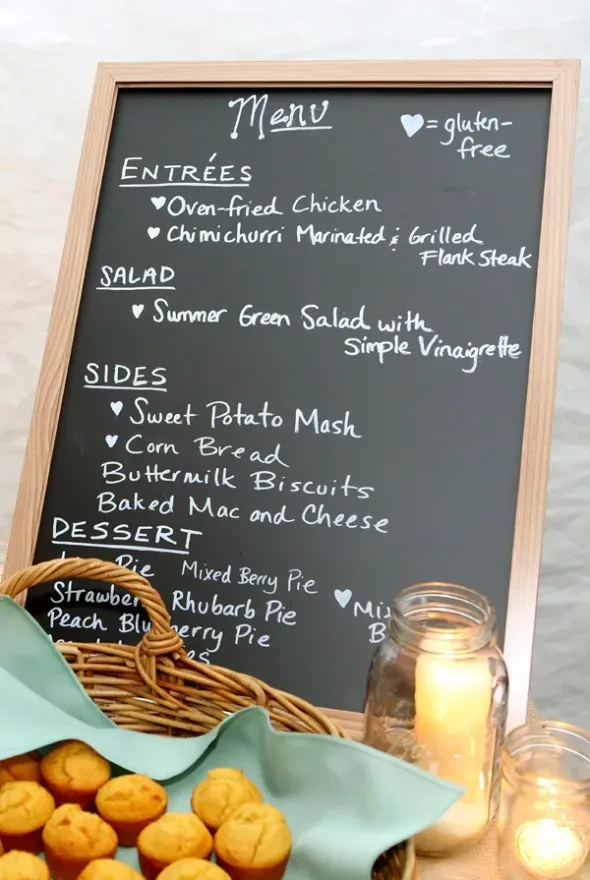 Menu
♥ = gluten-
free
ENTRÉES
♥ Oven-fried Chicken
♥ Chimichurri Marinated & Grilled
Flank Steak
SALAD
♥ Summer Green Salad with
Simple Vinaigrette
SIDES
♥ Sweet Potato Mash
♥ Corn Bread
Buttermilk Biscuits
Baked Mac and Cheese
DESSERT
Pie Mixed Berry Pie
Rhubarb Pie ♥
Peach Pie